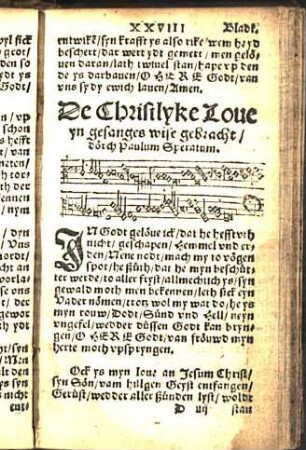 XXVIII Bladt.
entwike/ syn krafft ys also rike/ wem he yd
beschert/ dar wert ydt gemert/ men gelö-
uen daran/ lath twiuel stan/ hape vp den
de ys darbauen/ O HERE Godt/ van
vns sy dy ewich lauen/ Amen.
De Christlyke Loue
yn gesanges wise gebracht/
dörch Paulum Speratum.
IN Godt gelöue ick/ dat he hefft vth
nicht/ geschapen/ Hemmel vnd er-
den/ Nene nodt/ mach my to vögen
spot/ he süth/ dat he myn beschüt-
ter werde/ to aller fryst/ allmechtich ys/ syn
gewald moth men bekennen/ leth sick eyn
Vader nömen/ trotz wol my wat do/ he ys
myn rouw/ Dodt/ Sünd vnd Hell/ neyn
vngefel/ wedder düssen Godt kan bryn-
gen/ O HERE Godt/ van fröuwd myn
herte moth vpspryngen.
Ock ys myn loue an Jesum Christ/
syn Sön/ vam hilligen Geyst entfangen/
Gerüst/ wedder aller sünden lyst/ woldt
D iiij stan